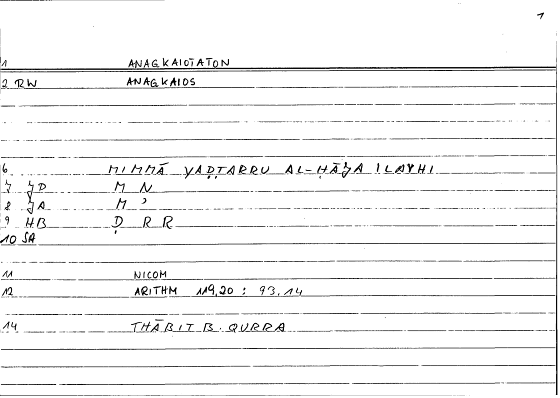 1
1 ANAGKAIOTATON
2 RW ANAGKAIOS
6 MIMMĀ YAḌṬARRU AL-ḤĀǦA ILAYHI
7 ǦD M N
8 ǦA M ʾ
9 HB Ḍ R R
10 SA
11 NICOM
12 ARITHM 119,20 : 93,14
14 THĀBIT B. QURRA